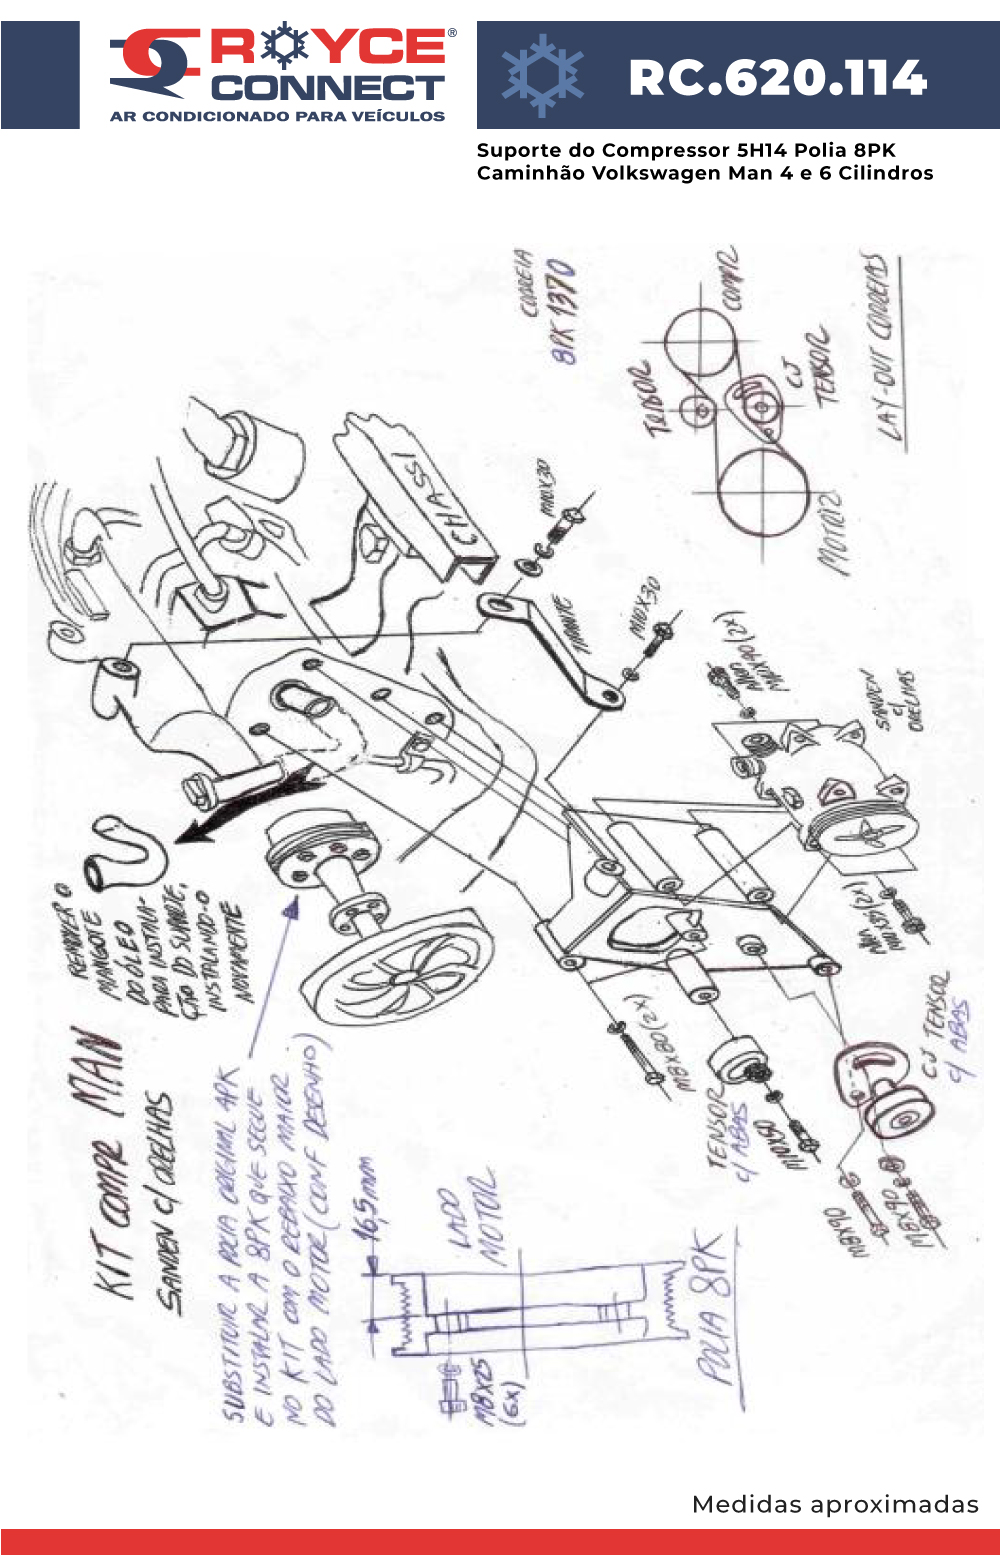 ROYCE®
CONNECT
AR CONDICIONADO PARA VEÍCULOS
RC.620.114
Suporte do Compressor 5H14 Polia 8PK
Caminhão Volkswagen Man 4 e 6 Cilindros
KIT COMPR MAN
SANDEN C/ ORELHAS
REMOVER O
MANGOTE
DO ÓLEO
PARA INSTALA-
ÇÃO DO SUPORTE,
INSTALANDO-O
NOVAMENTE
SUBSTITUIR A POLIA ORIGINAL 4PK
E INSTALAR A 8PK QUE SEGUE
NO KIT COM O REBAIXO MAIOR
DO LADO MOTOR (CONF DESENHO)
16,5mm
LADO
MOTOR
M8X25
(6X)
POLIA 8PK
CHASSI
M10X30
TIRANTE
M10X30
M8X80 (2X)
TENSOR
C/ ABAS
M8X90
M8X90
CJ TENSOR
C/ ABAS
SANDEN
C/
ORELHAS
CORREIA
8PK 1370
TENSOR
COMPR
CJ
TENSOR
MOTRIZ
LAY-OUT CORREIAS
Medidas aproximadas